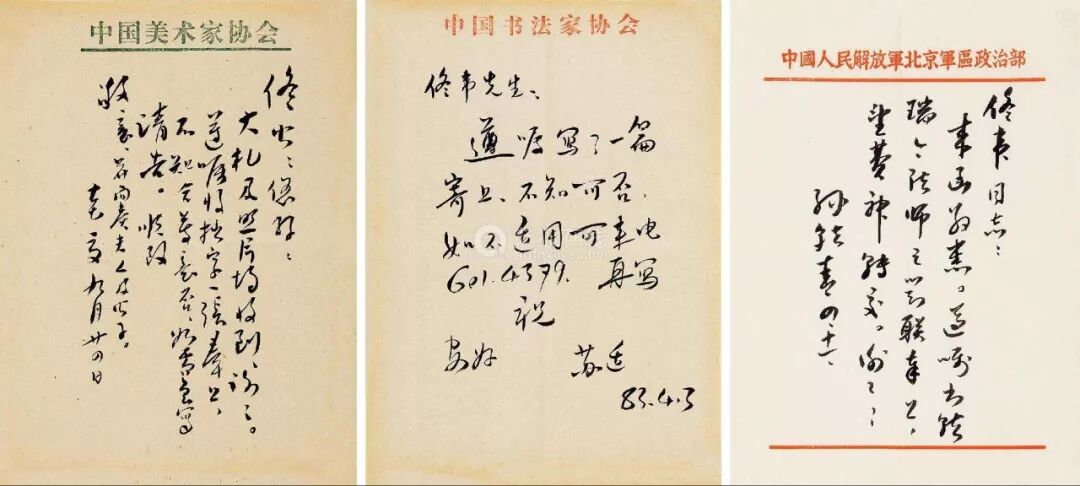 中国美术家协会
佟韦您好：
大札及照片均收到，谢谢。
遵嘱将拙字一张奉上，
不知合尊意否，如需重写
请告。顺致
敬意
九月廿四日
中国书法家协会
佟韦先生：
遵嘱写了一篇
寄上、不知可否，
如不适用可来电
601.4379. 再写
祝
安好
苏适
83.4.3
中國人民解放軍北京軍區政治部
佟韦同志：
来函敬悉。遵嘱书
瑞今法师之联奉上，
望费神转交。谢谢：